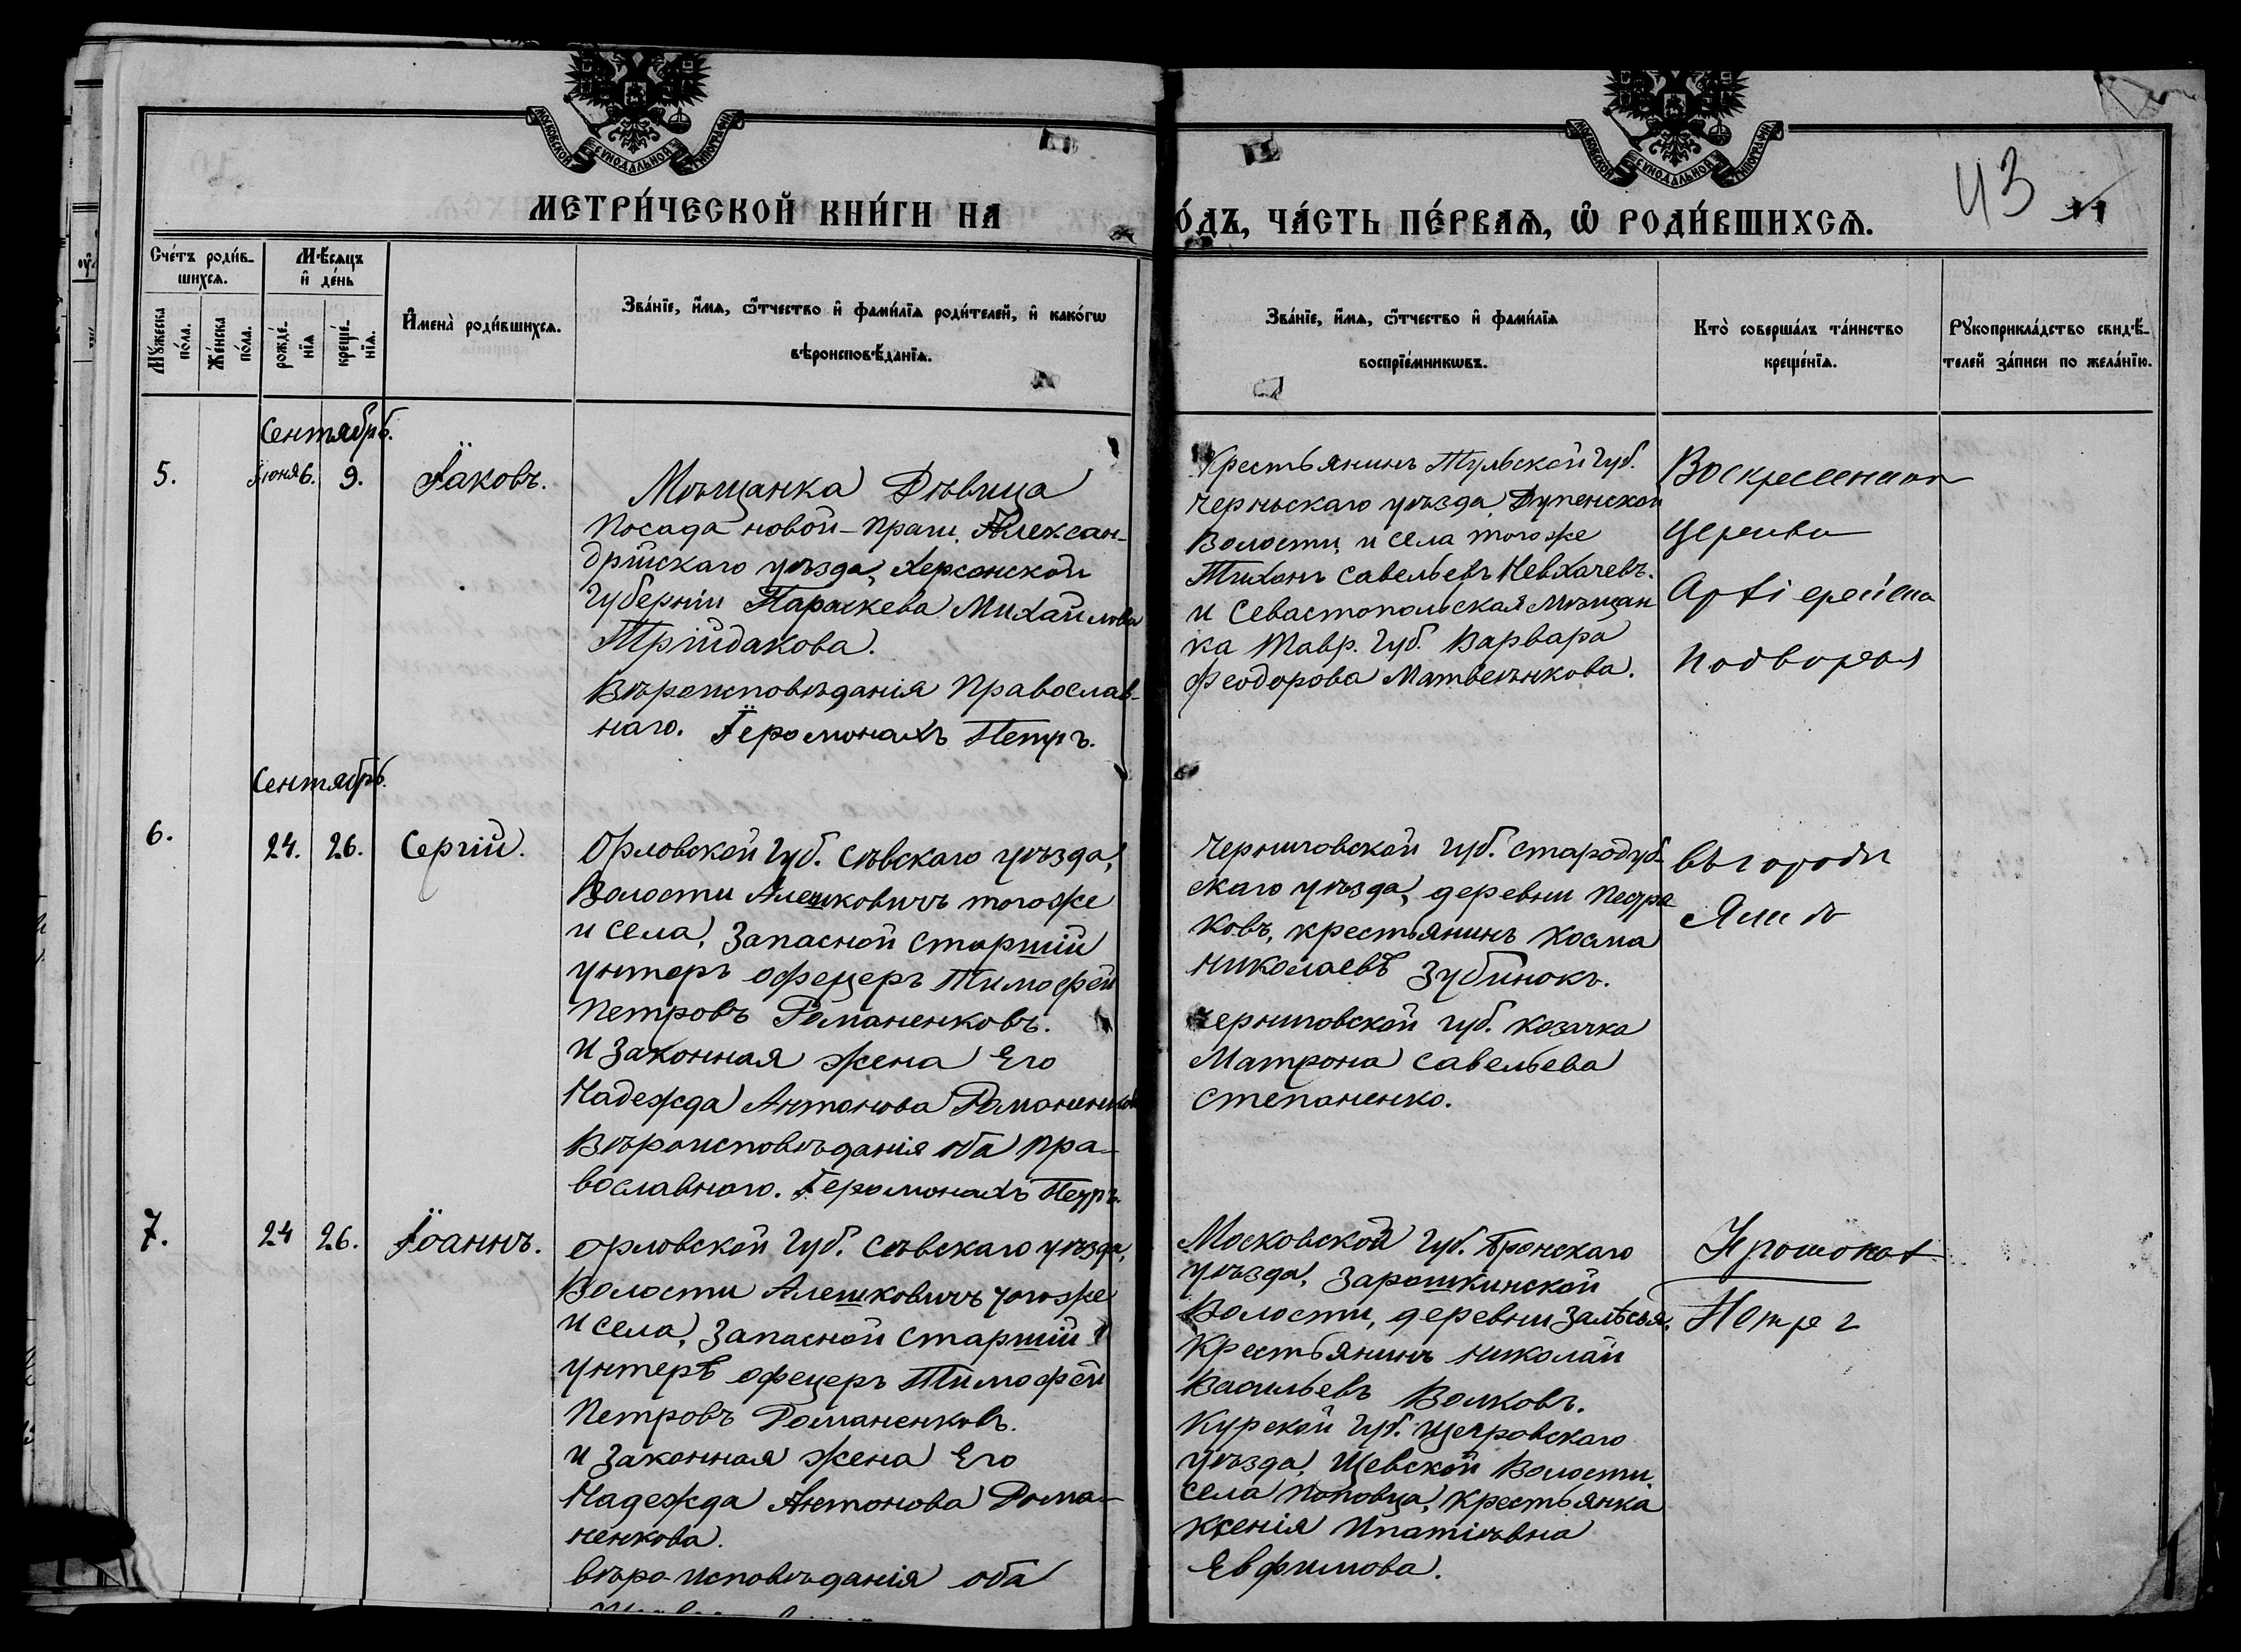 МОСКОВСКОЙ СѴНОДАЛЬНОЙ ТИПОГРАФІИ
МОСКОВСКОЙ СѴНОДАЛЬНОЙ ТИПОГРАФІИ
МЕТРИ́ЧЕСКОЙ КНИ́ГИ НА
О́ДЪ, ЧА́СТЬ ПЕ́РВАѦ, Ѡ РОДИ́ВШИХСѦ.
43
Сче́тъ роди́в-
шихсѧ.
Мꙋ́жеска
по́ла.
Же́нска
по́ла.
Мѣ́сѧцъ
и҆ де́нь
рожде́-
нїѧ
креще́-
нїѧ.
И҆мена̀ роди́вшихсѧ.
Зва́нїе, и҆́мѧ, ѻ҆́тчество и҆ фами́лїѧ роди́телей, и҆ како́гѡ
вѣроисповѣ́данїѧ.
Зва́нїе, и҆́мѧ, ѻ҆́тчество и҆ фами́лїѧ
воспрїе́мникѡвъ.
Кто̀ соверша́лъ та́инство
креще́нїѧ.
Рꙋкоприкла́дство свидѣ́-
телей за́писи по жела́нїю.
Сентябрь.
5.
Іюня 6.
9.
Іаковъ.
Мѣщанка Дѣвица
посада новой-Праги, Алексан-
дрійскаго уѣзда, Херсонской
Губерніи Параскева Михайлова
Трійдакова.
Вѣроисповѣданія Православ-
наго. Іеромонахъ Петръ.
Крестьянинъ Тульской Губ.
Черньскаго уѣзда, Дупенской
Волости и села тогоже
Тихонъ Савельевъ Невхачевъ.
и Севастопольская Мѣщан
ка Тавр. Губ. Варвара
Феодорова Матвеенкова.
Воскресенская
Церкви
Архіерейска
подворья
Сентябрь.
6.
24.
26.
Сергій.
Орловской Губ. Сѣвскаго уѣзда,
Волости Алешковичъ тогоже
и села, Запасной старшій
унтеръ офецеръ Тимофей
Петровъ Романенковъ.
и Законная жена Его
Надежда Антонова Романенкова
Вѣроисповѣданія оба пра-
вославнаго. Іеромонахъ Петръ.
Черниговской Губ. Стародуб-
скаго уѣзда, деревни Педра
ковъ, крестьянинъ Косма
Николаевъ Зубинокъ.
Черниговской губ. козачка
Матрона Савельева
Степаненко.
въ городѣ
7.
24
26.
Іоаннъ.
Орловской Губ. Сѣвскаго уѣзда,
Волости Алешковичъ тогоже
и села, Запасной старшій
унтеръ офецеръ Тимофей
Петровъ Романенковъ.
и Законная жена Его
Надежда Антонова Рома-
ненкова.
вѣро-исповѣданія оба
Московской Губ. Бронскаго
уѣзда, Зарошкинской
Волости, деревни Залѣсья,
Крестьянинъ Николай
Васильевъ Волковъ.
Курской Губ. Щегровскаго
уѣзда, Щевской Волости
села Поповца, Крестьянка
Ксенія Ипатіевна
Евфимова.
Іеромонах
Петръ